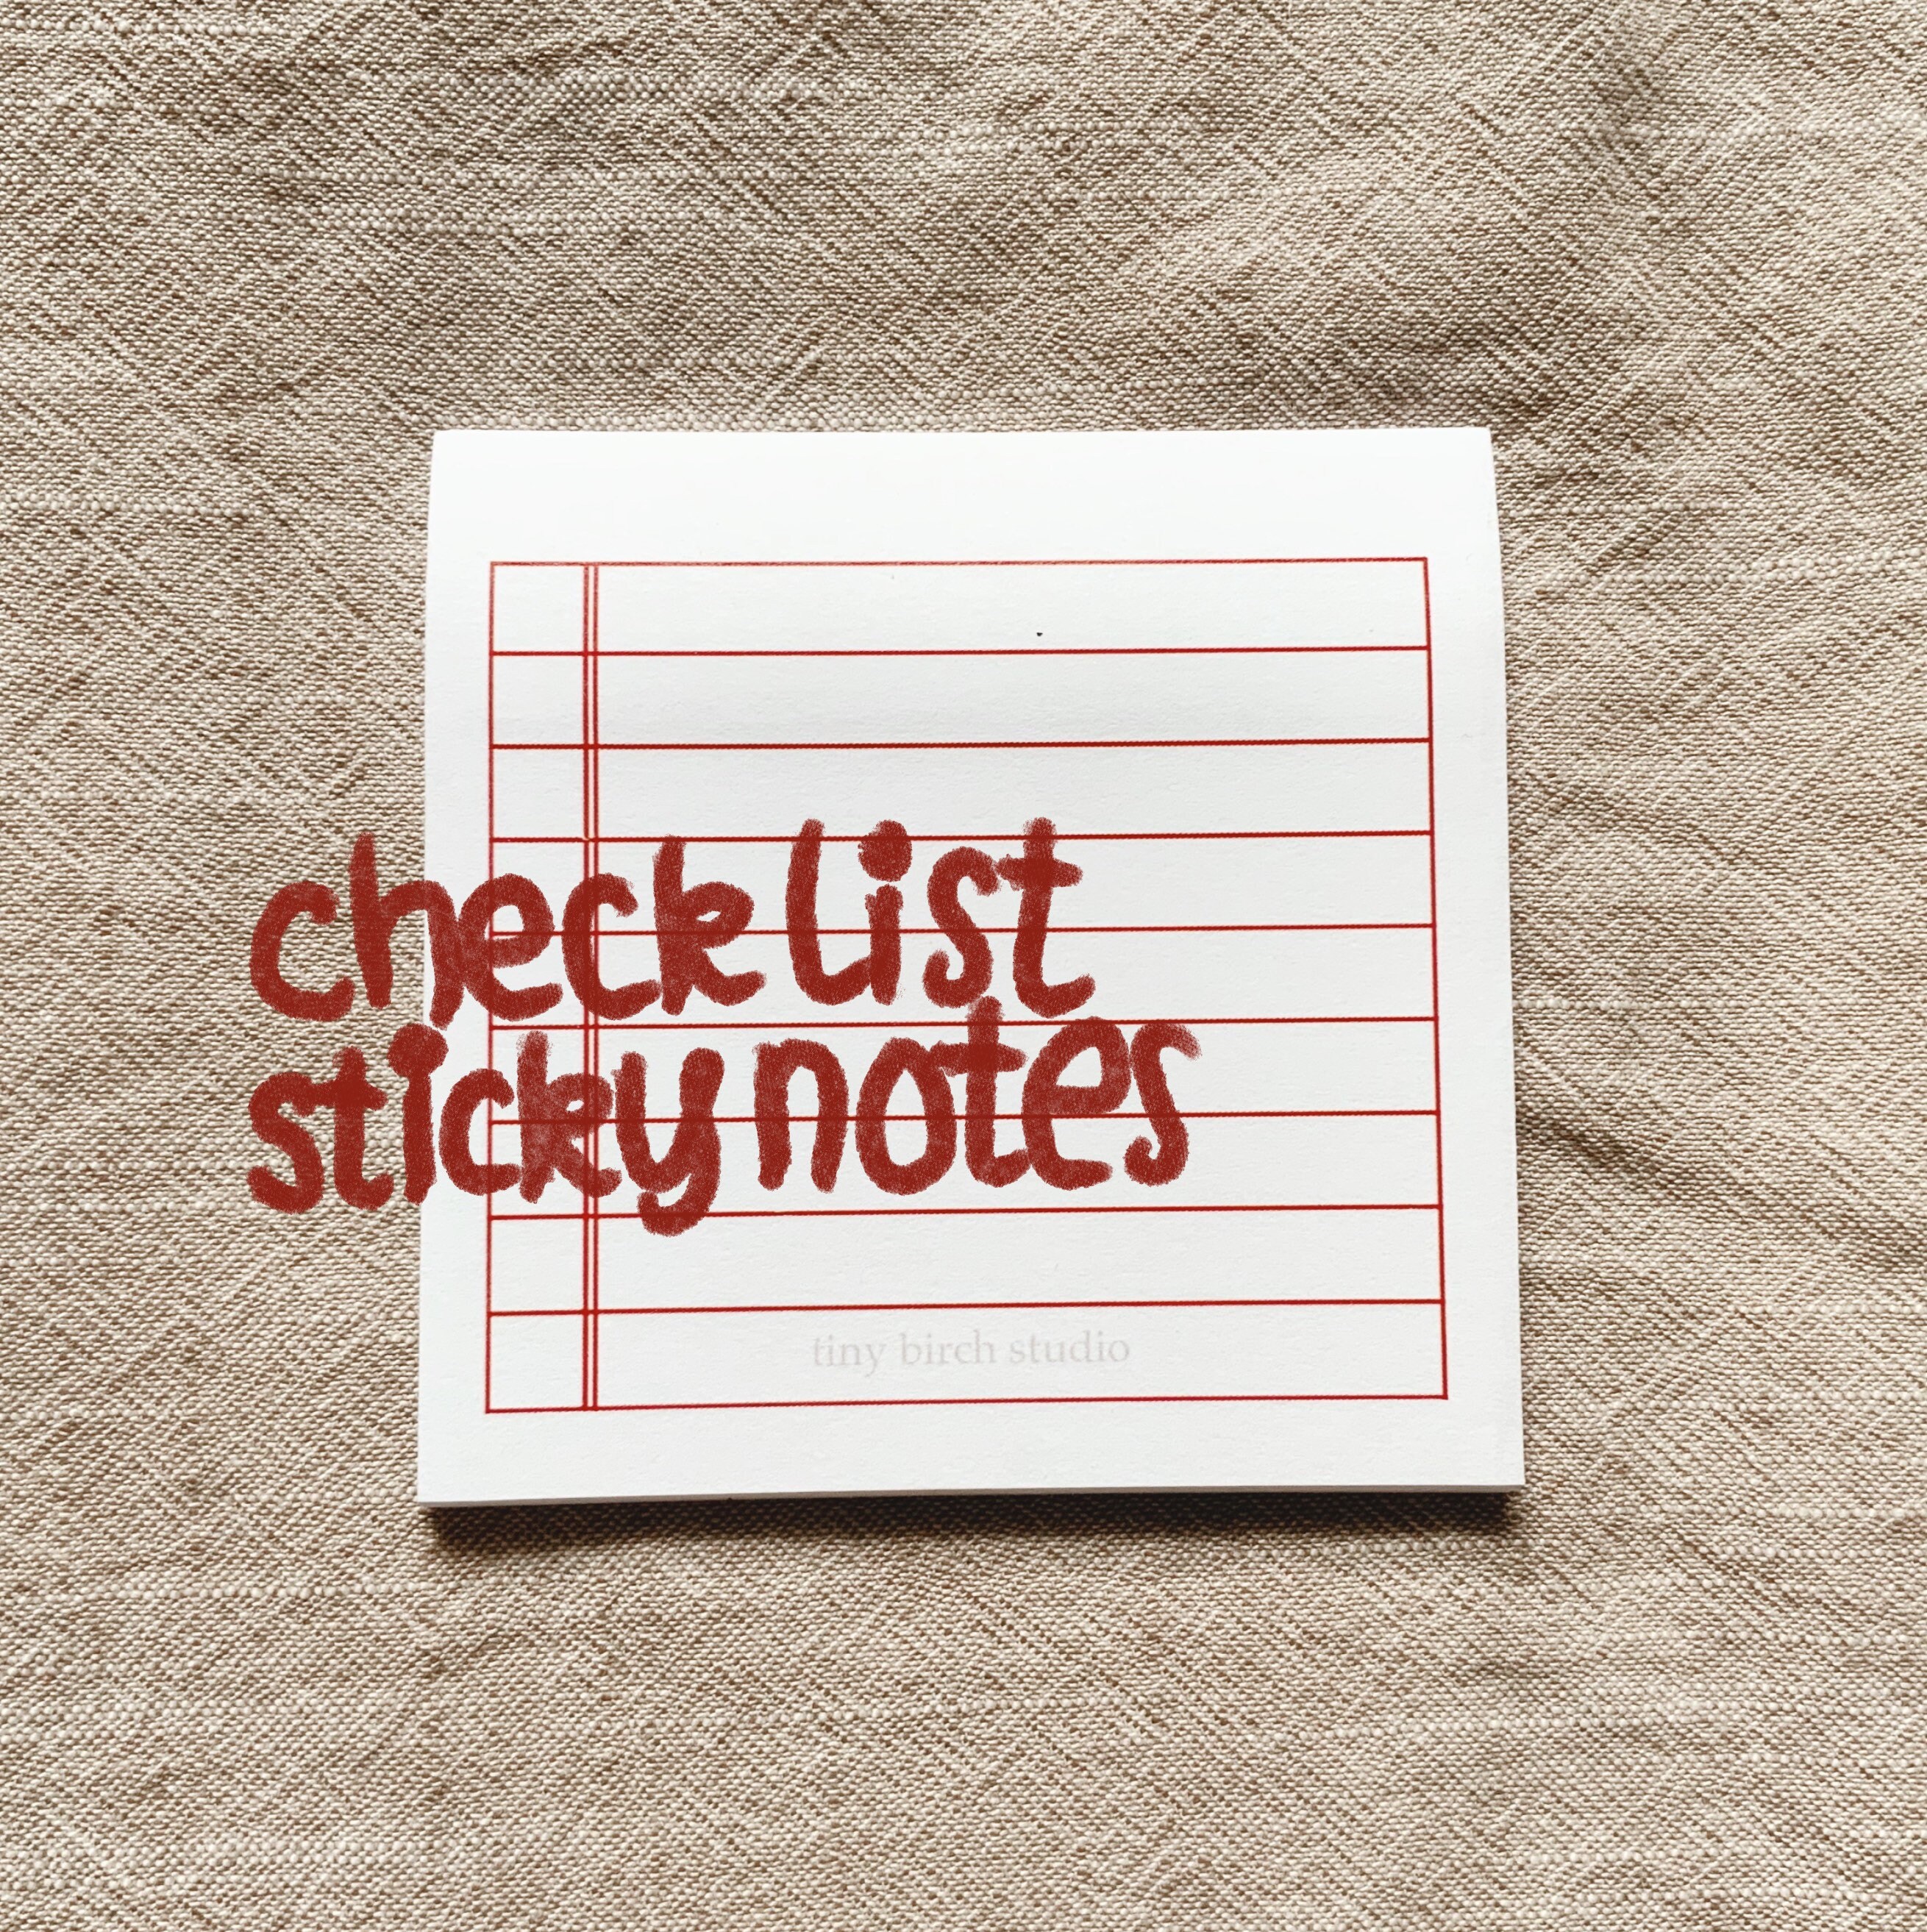 checklist
sticky notes
tiny birch studio